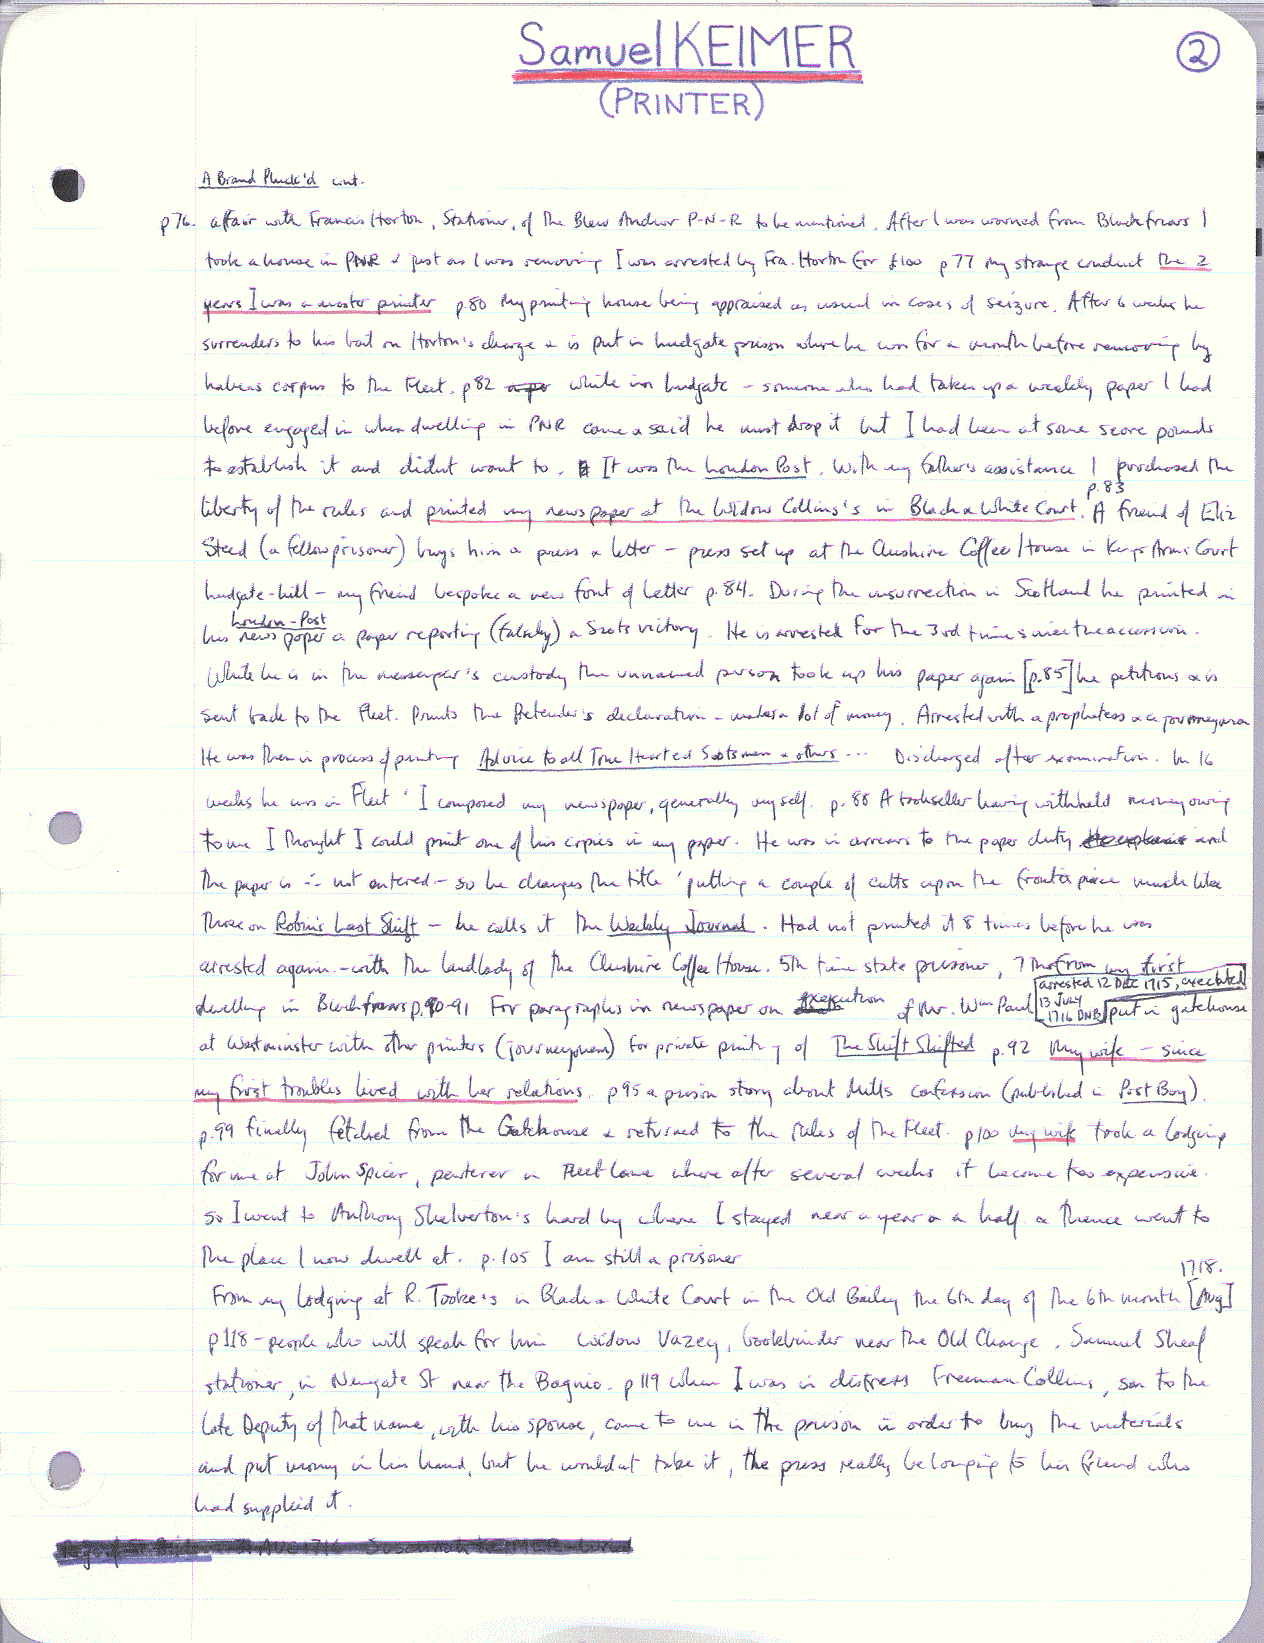 Samuel KEIMER
2
(PRINTER)
A Brand Pluck'd cont.
p76. affair with Francis Horton, Stationer, of the Blew Anchor P-N-R to be mentioned. After I was warned from Blackfriars I
took a house in PNR & just as I was removing I was arrested by Fra. Horton for £100 p77 My strange conduct the 2
years I was a master printer p.80 My printing house being appraised as usual in cases of seizure. After 6 weeks he
surrenders to his bail on Horton's charge & is put in Ludgate prison where he was for a month before removing by
habeas corpus to the Fleet. p82 while in Ludgate - someone who had taken up a weekly paper I had
before engaged in when dwelling in PNR came & said he must drop it but I had been at some score pounds
to establish it and didnt want to. It was the London Post. With my father's assistance I purchased the
liberty of the rules and printed my newspaper at the Widow Collins's in Black & White Court. p.83 A friend of Eliz
Steed (a fellow prisoner) buys him a press & letter - press set up at the Cheshire Coffee House in Kings Arms Court
Ludgate-hill - my friend bespoke a new font of letter p.84. During the insurrection in Scotland he printed in
his London-Post news paper a paper reporting (falsely) a Scots victory. He is arrested for the 3rd time since the accession.
While he is in the messenger's custody the unnamed person took up his paper again [p.85] he petitions & is
sent back to the Fleet. Prints the Pretender's declaration - makes a lot of money. Arrested with a prophetess & a journeyman
He was then in process of printing Advice to all True Hearted Scotsmen & others ... Discharged after examination. In 16
weeks he was in Fleet 'I composed my newspaper, generally myself. p.88 A bookseller having withheld money owing
to me I thought I could print one of his copies in my paper. He was in arrears to the paper duty and
the paper is ∴ not entered - so he changes the title 'putting a couple of cutts upon the frontispiece much like
those on Robin's Last Shift - he calls it the Weekly Journal. Had not printed it 8 times before he was
arrested again - with the landlady of the Cheshire Coffee House. 5th time state prisoner, 7th from my first
dwelling in Blackfriars p.90-91 For paragraphs in newspaper on execution of Mr. Wm Paul [arrested 12 DEC 1715, executed 13 JULY 1716 DNB] put in gatehouse
at Westminster with other printers (journeymen) for private printing of The Shift Shifted p.92 My wife - since
my first troubles lived with her relations. p95 a prison story about Mills confession (published in Post Boy).
p.99 finally fetched from the Gatehouse & returned to the rules of the Fleet. p100 my wife took a lodging
for me at John Spicer, pewterer in Fleet Lane where after several weeks it became too expensive.
so I went to Anthony Shelverton's hard by where I stayed near a year & a half & thence went to
the place I now dwell at. p.105 I am still a prisoner
From my Lodging at R. Tooke's in Black & White Court in the Old Bailey the 6th day of the 6th month [Aug] 1718.
p118 - people who will speak for him Widow Vazey, bookbinder near the Old Change, Samuel Sheaf
stationer, in Newgate St near the Bagnio. p119 When I was in distress Freeman Collins, son to the
late Deputy of that name, with his spouse, came to me in the prison in order to buy the materials
and put money in his hand, but he wouldnt take it, the press really belonging to his friend who
had supplied it.
31 AUG 1716 Susannah KEIMER